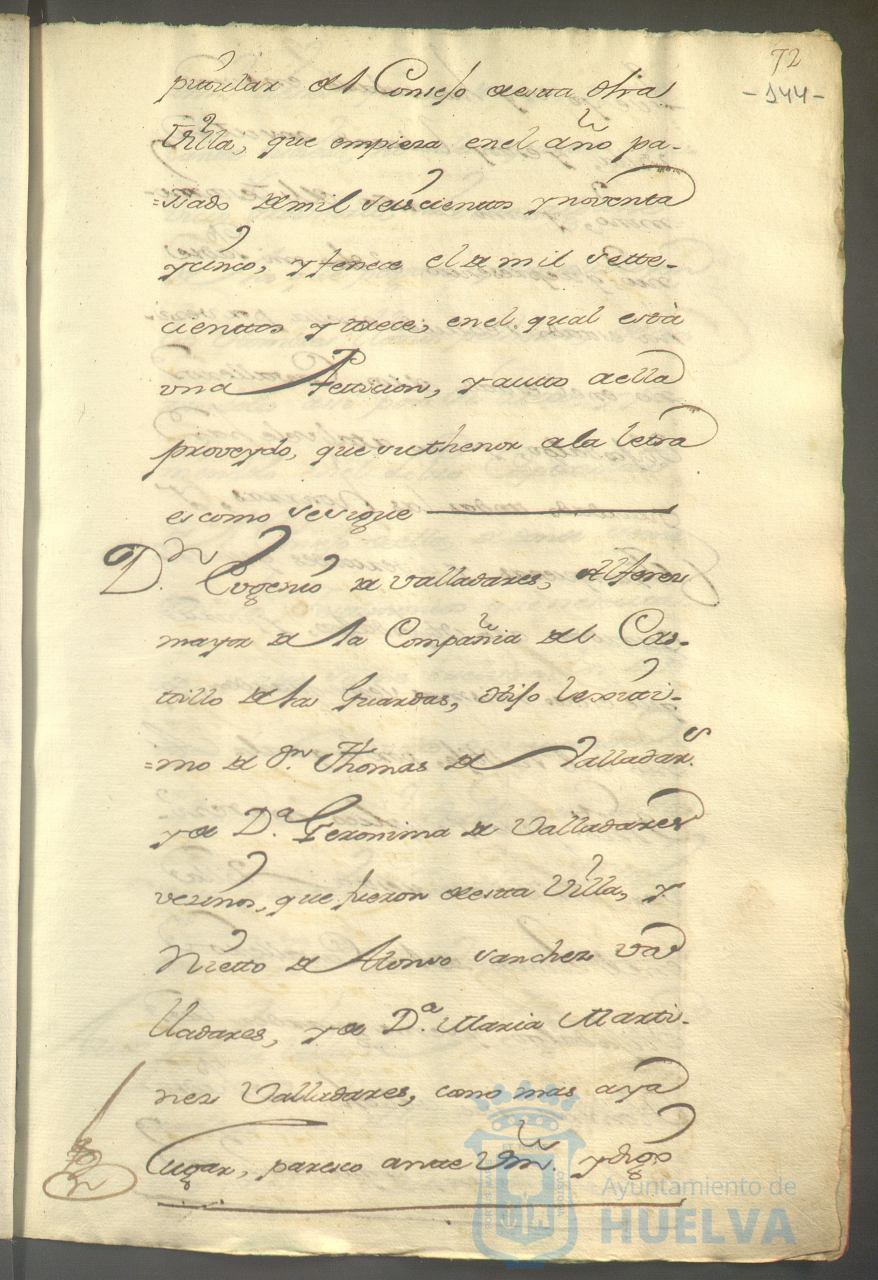 72
- 144 -
pitular del Consejo desta dha
Villa, que empieza en el año pa-
=sado de mil seiscientos y noventa
y cinco, y fenece el de mil sette-
cientos y trece, en el qual està
una Peticion, y autto a ella
proveydo, que su thenor a la letra
es como se sigue
D.n Eugenio de Valladares, Alferez
mayor de la Compañia del Cas-
tillo de las Guardas, hijo lexiti-
=mo de D.n Thomas de Valladar.s
y de D.a Geronima de Valladares
vezinos, que fueron desta Villa, y
Nietto de Alonso Sanchez Va
lladares, y de D.a Maria Marti-
nez Valladares, como mas aya
Lugar, paresco antte Vm. y digo
Ayuntamiento de
HUELVA